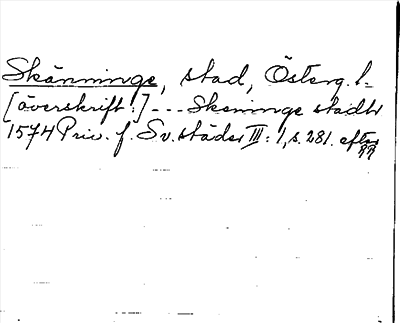 Skänninge, stad, Österg. l.
[överskrift:] --- Skeninge stadh
1574 Priv. f. Sv. städer III: 1, s. 281. efter
RR